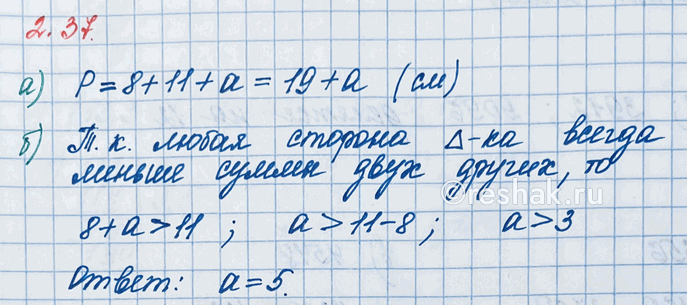 2.37.
а) P = 8 + 11 + a = 19 + a (см)
б) Т.к. любая сторона Δ-ка всегда
меньше суммы двух других, то
8 + a > 11 ; a > 11 - 8 ; a > 3
Ответ: a = 5.
©reshak.ru